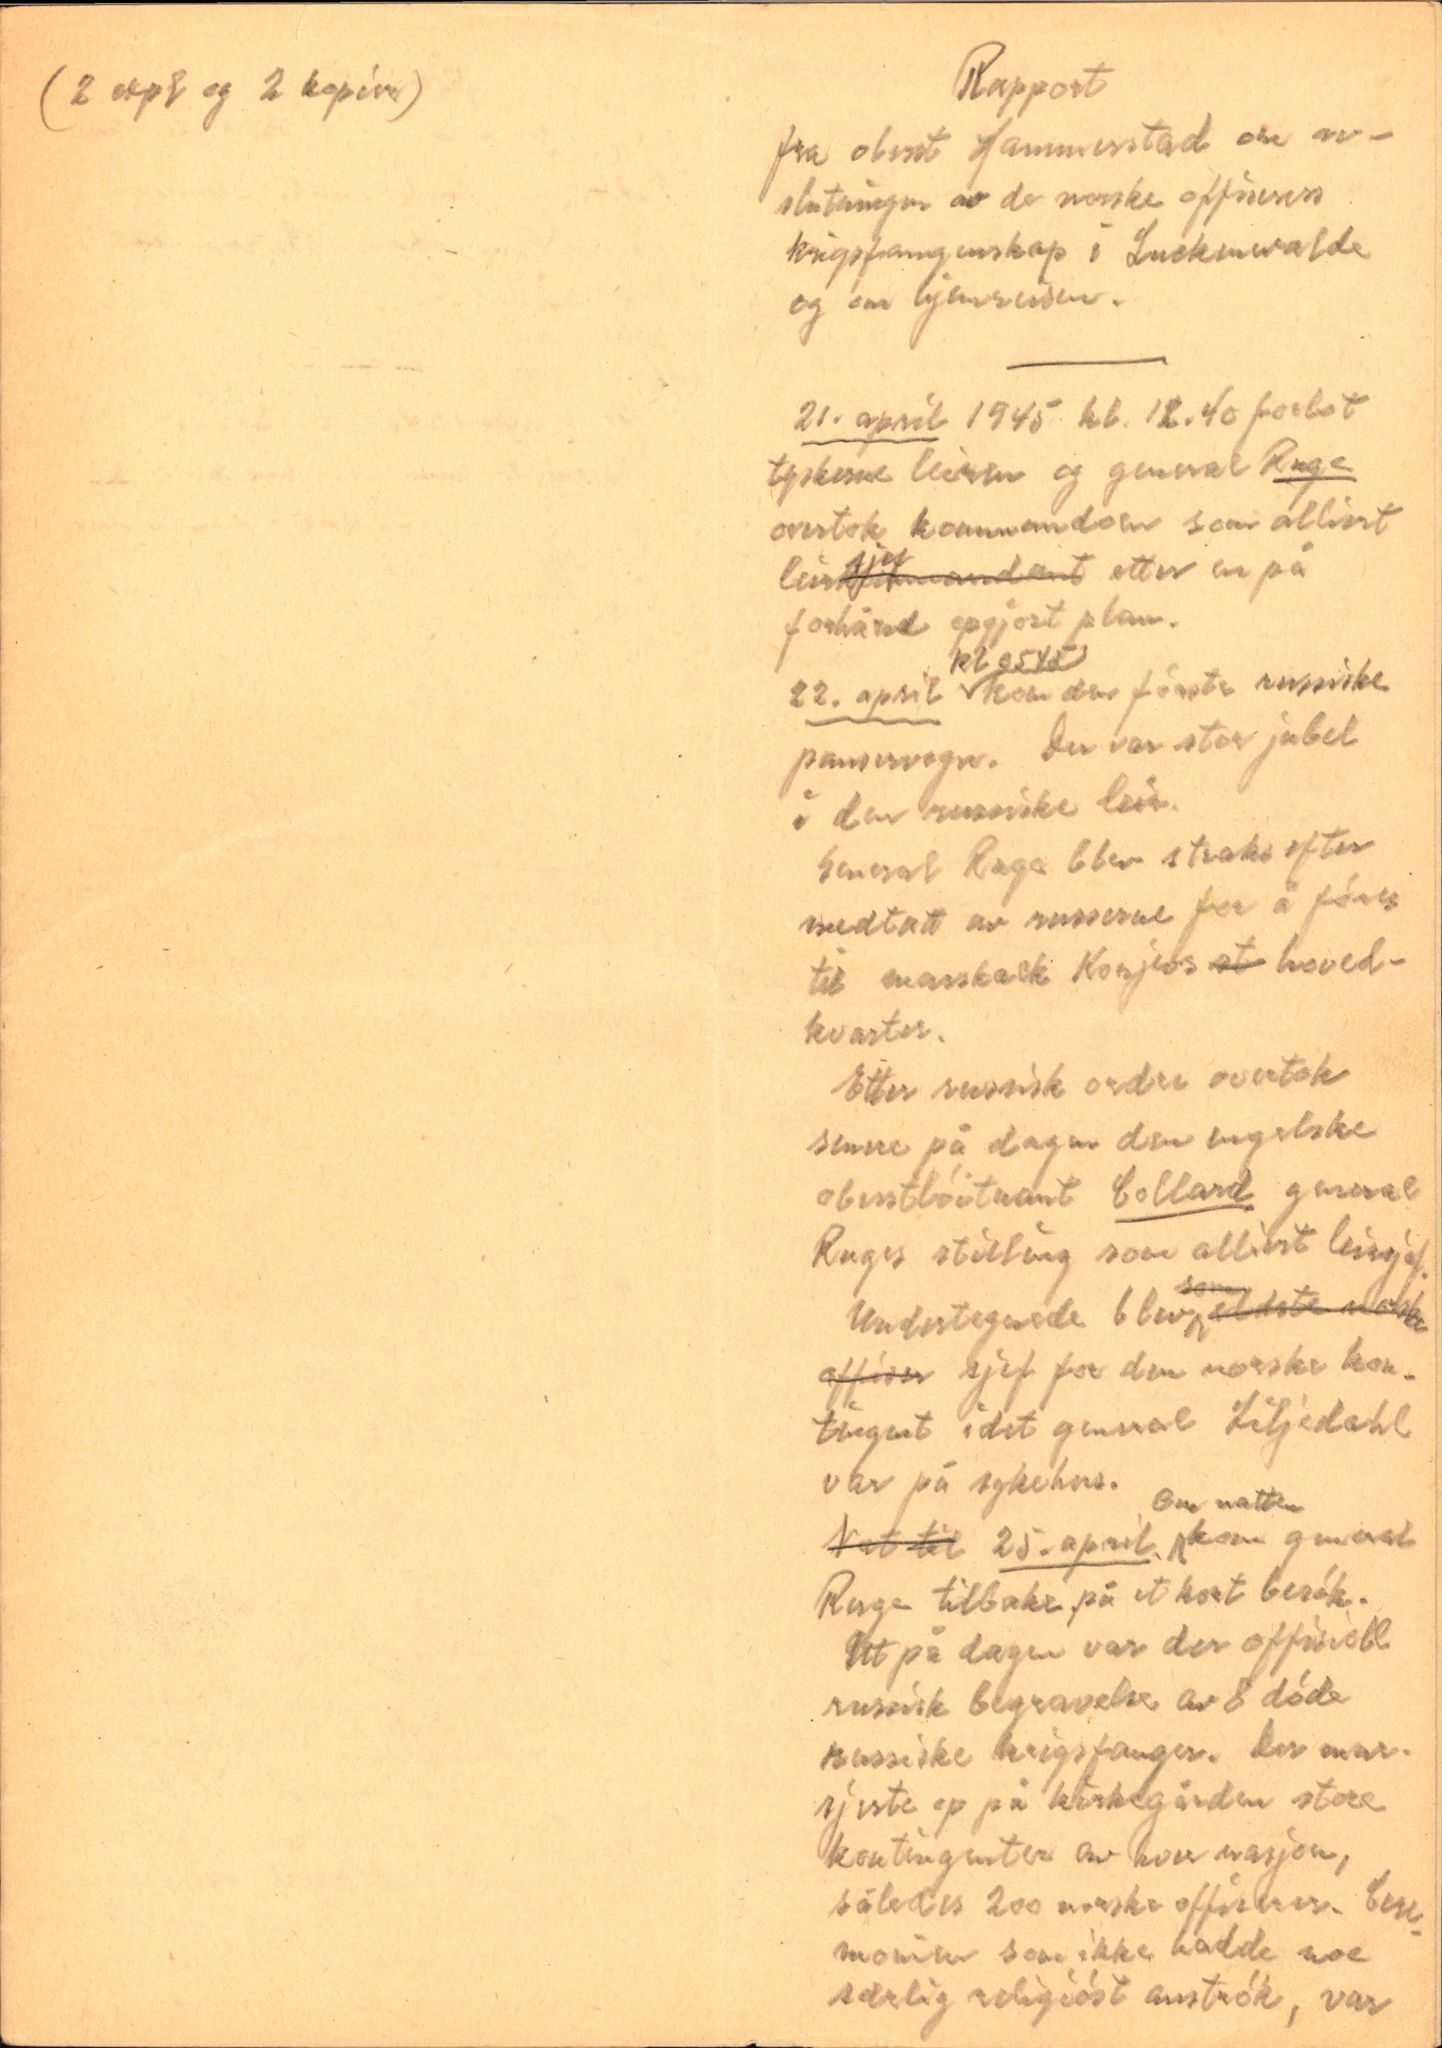 (2 expl og 2 kopier)
Rapport
fra oberst Hammerstad om av-
slutningen av de norske offiserers
krigsfangenskap i Luckenwalde
og om hjemreisen.
21. april 1945 kl. 12.40 forlot
tyskerne leiren og general Ruge
overtok kommandoen som alliert
sjef
leirkommandant etter en på
forhånd opgjort plan.
kl 0545
22. april kom den første russiske
panservogn. Der var stor jubel
i den russiske leir.
General Ruge blev straks efter
medtatt av russerne for å føres
til marskalk Konjevs st hoved-
kvarter.
Etter russisk ordre overtok
senere på dagen den engelske
oberstløitnant Collard general
Ruges stilling som alliert leirsjef.
som
Undertegnede blev eldste norske
offiser sjef for den norske kon-
tingent idet general Liljedahl
var på sykehus.
Om natten
Nat til 25. april kom general
Ruge tilbake på et kort besøk.
Utt på dagen var der offisiell
russisk begravelse av 8 døde
russiske krigsfanger. Der mar-
sjerte op på kirkegården store
kontingenter av hver nasjon,
således 200 norske offiserer. Cere-
monien som ikke hadde noe
særlig religiøst anstrøk, var